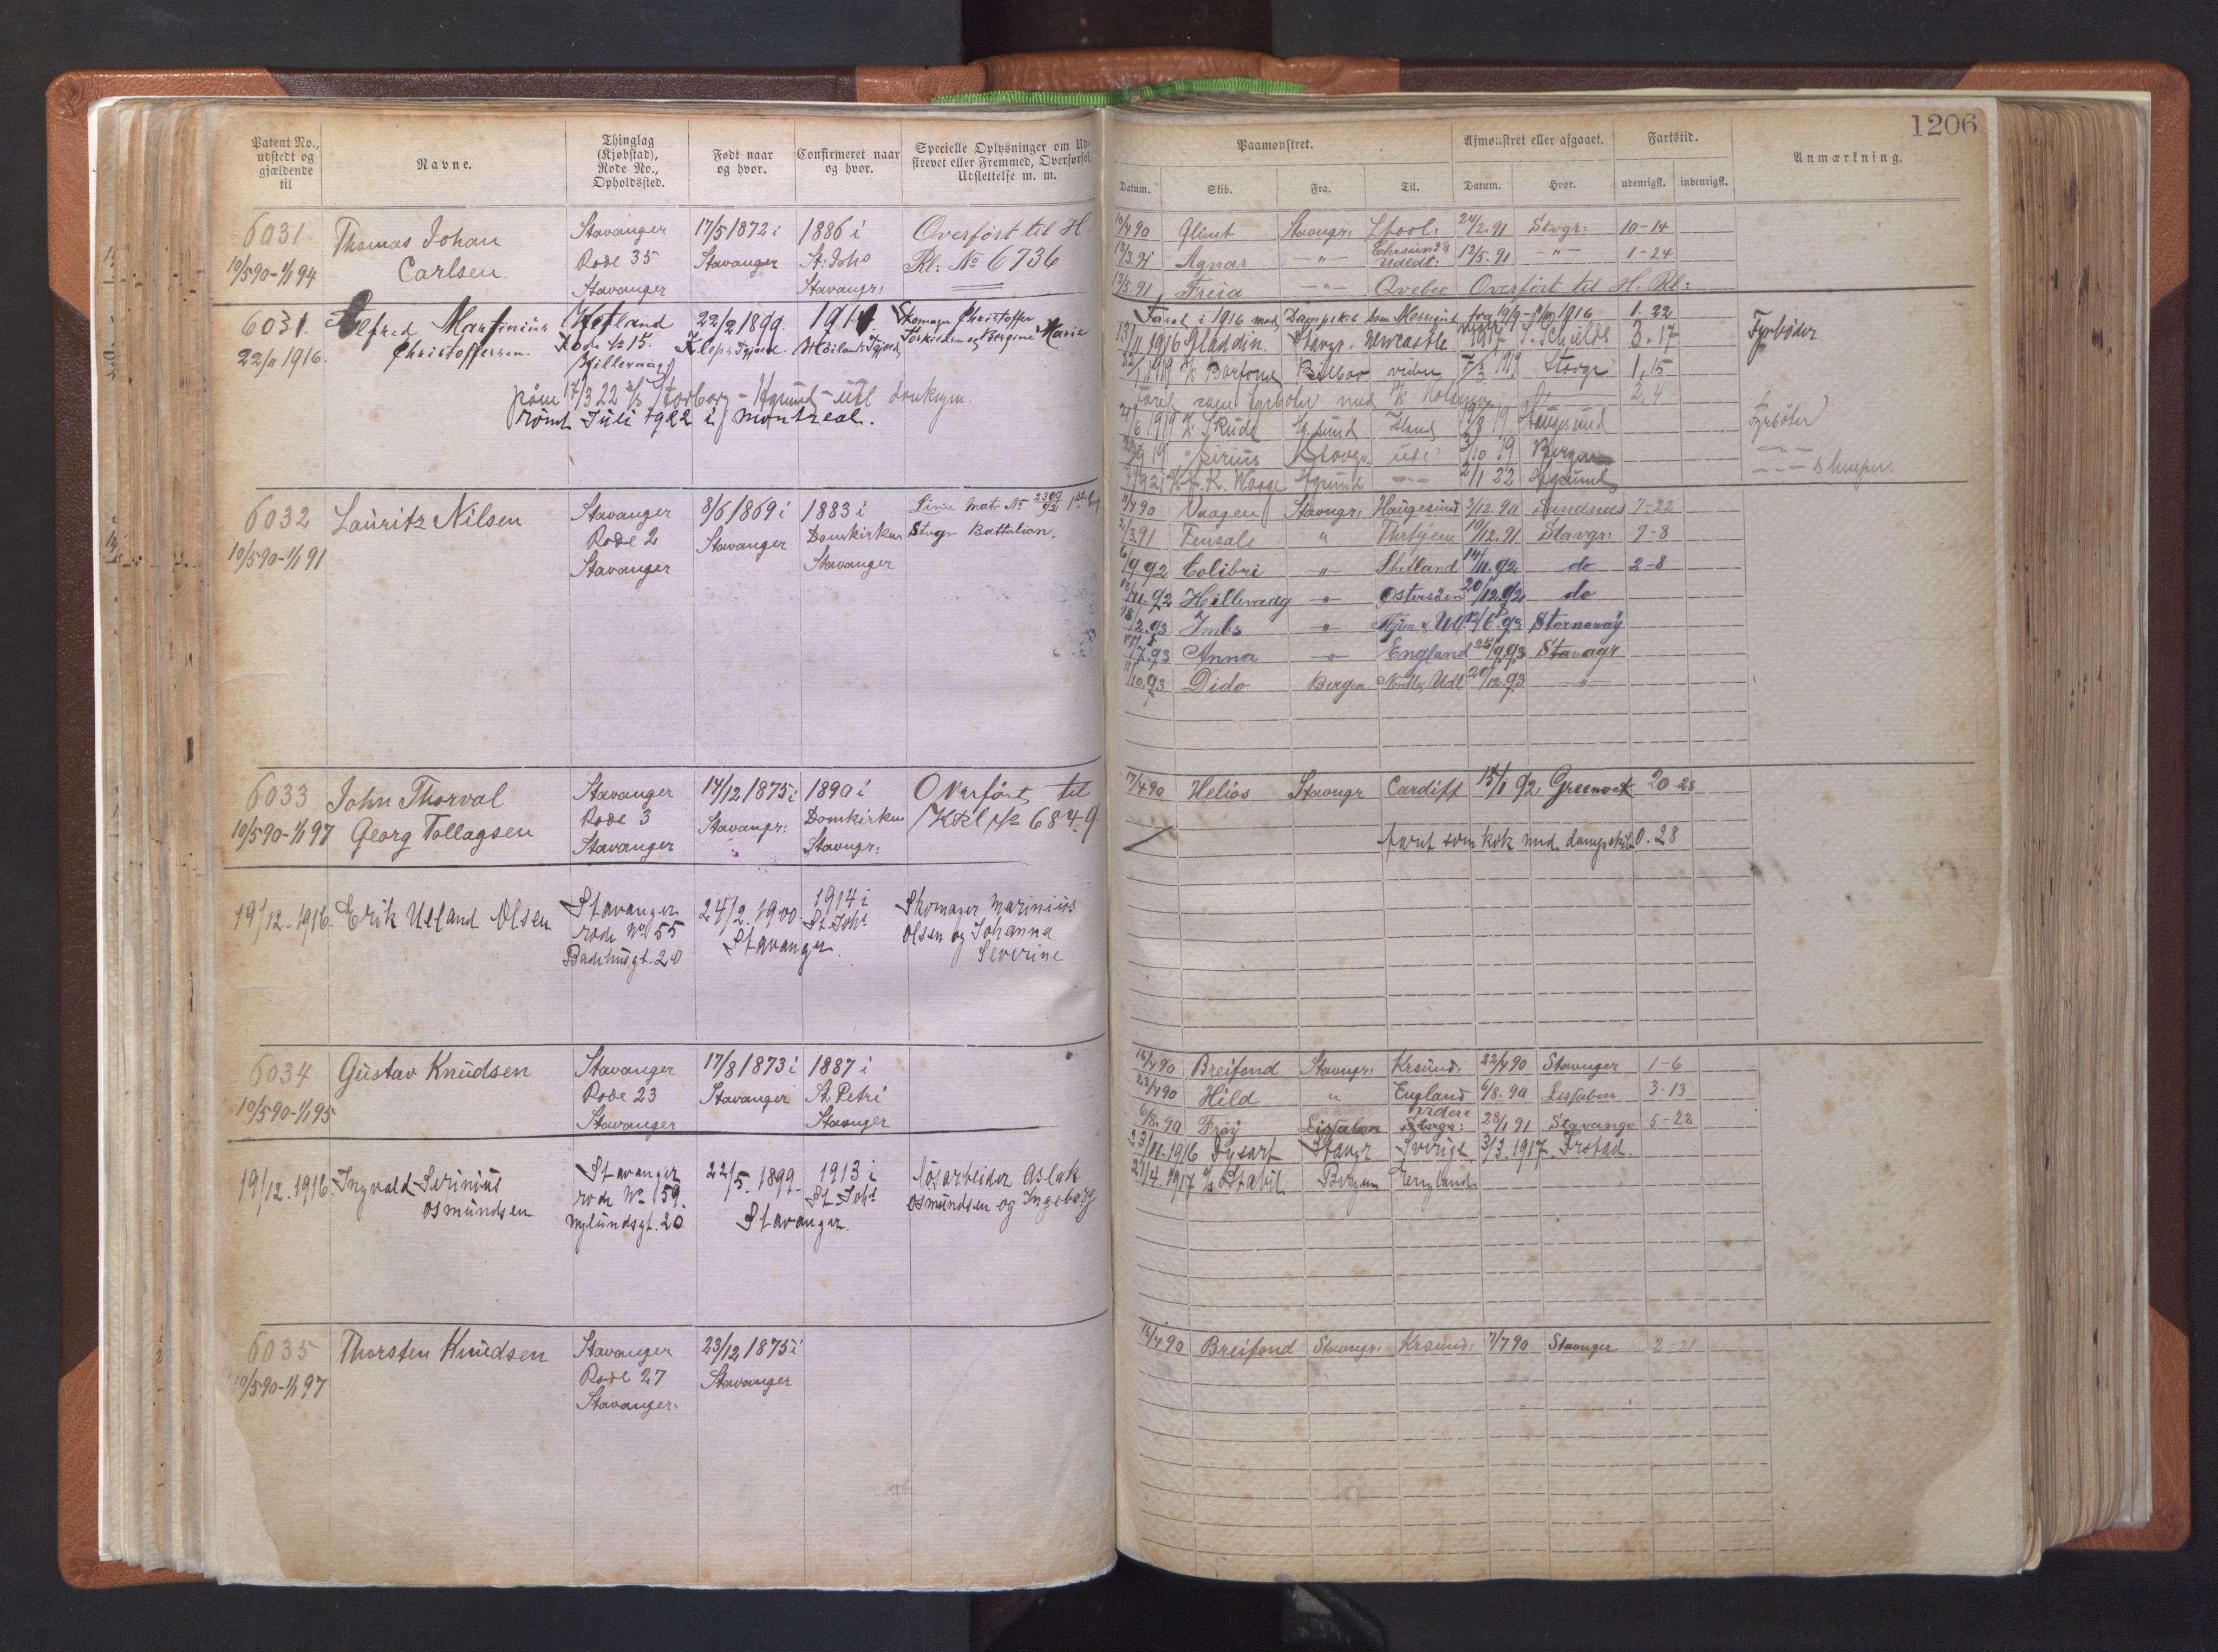 1206
Patent No., udstedt og gjældende til
Navne.
Thinglag (Kjøbstad), Rode No., Opholdssted.
Født naar og hvor.
Confirmeret naar og hvor.
Specielle Oplysninger om Ud-
skrevet eller Fremmed, Overførsel,
Udslettelse m. m.
Paamønstret.
Afmønstret eller afgaaet.
Fartstid.
Anmærkning.
Datum. Skib. Fra. Til. Datum. Hvor. udenrigsk. indenrigsk.
6031 Thomas Johan Stavanger 17/5 1872 i 1886 i Overført til H
10/5 90 - 1/1 94 Carlsen Rode 35 Stavanger St: Joh° Rl: No 6736
Stavanger Stavangr:
10/4 90 Glimt Stavngr: Lpool: 24/2. 91 Stvgr: 10-14
12/3. 91 Agnar -"- Udldt: 12/5. 91 -"- 1-24
12/5. 91 Freia -"- Qvebec Overført til H. Rl:
6031. Alfred Martinius Hetland 22/2 1899. 1914. Skomager Christoffer
22/11 1916. Christoffersen. Rode No 15. Klep i Høiland Torkildsen og Bergine Marie
Hillevaag
paam 17/3 22 Storborg - Hgsund - utl donkeym.
rømt Juli 1922 i Montreal.
Faret i 1916 med Dampskib som Messegut fra 19/9 - 1916 1. 22
13/11 1916 Aladdin. Stavgr. Newcastle 1917 S. Schields 3. 17 Fyrbøder
1919 Barfond Bilbao viden 1919 Stavgr 1, 15
Faret som fyrbøter med 2, 4
1919 Skude Hgsund 19 Haugesund Fyrbøter
19 Sirius Stavgr utl 3/10 19 Bergen
K. Waage Hgsund 2/1 22 Hgsund
6032 Lauritz Nilsen Stavanger 8/6 1869 i 1883 i Linie Mat. No 2309/92 1ste
10/5 90 - 1/1 91 Rode 2 Stavanger Domkirken Stvgr Battalion.
Stavanger Stavanger
11/4 90 Vaagen Stavngr: Haugesund 3/12. 90 Sandnæs 7-22
2/3. 91 Fensale " Thrhjem 10/12. 91 Stavgr: 9-8
6/9. 92 Colibri -"- Shetland 14/11. 92 do 2-8
17/11. 92 Hillevaag -"- Østersøen 20/12. 92 do
18/2. 93 Imbs -"- Udl 12/6. 93 Stornoway
17/7. 93 Anna -"- England 25/9. 93 Stavagr
11/10. 93 Dido Bergen Udl 20/12. 93 -"-
6033 John Thorval Stavanger 14/12 1875 i 1890 i Overført til
10/5 90 - 1/1 97 Georg Tollagsen Rode 3 Stavangr: Domkirken HRl No 6849.
Stavanger Stavngr:
17/4 90 Helios Stavngr Cardiff 15/1 92 Greenock 20-28
faret som kok med dampskib 0. 28
19/12. 1916. Erik Ueland Olsen Stavanger 24/2. 1900. 1914 i Skomager Marinius
rode No 55 Stavanger. St. Joh: Olsen og Johanna
Badehusgt. 20 Severine
6034 Gustav Knudsen Stavanger 17/8 1873 i 1887 i
10/5 90 - 1/1 95 Rode 23 Stavanger St. Petri
Stavanger Stavnger
16/4 90 Breifond Stavngr: Krsund: 22/4 90 Stavanger 1-6
23/4 90 Hild " England 6/8. 90 Lissabon 3-13
6/8. 90 Frøy Lissabon videre 28/1 91 Stavange 5-22
23/11. 1916 Dysart Stavgr Sverige 3/3. 1917. Frstad.
21/4. 1917 Stabil Bergen England
19/12. 1916. Ingvald Serinius Stavanger 22/5. 1899. 1913 i Løsarbeider Aslak
Osmundsen rode No 59. Stavanger. St. Joh: Osmundsen og Ingeborg
Nylundsgt. 20
6035 Thorsten Knudsen Stavanger 23/12 1875 i
10/5 90 - 1/1 97 Rode 27 Stavanger
Stavanger.
16/4 90 Breifond Stavngr. Krsund: 7/7 90 Stavnger 2-21